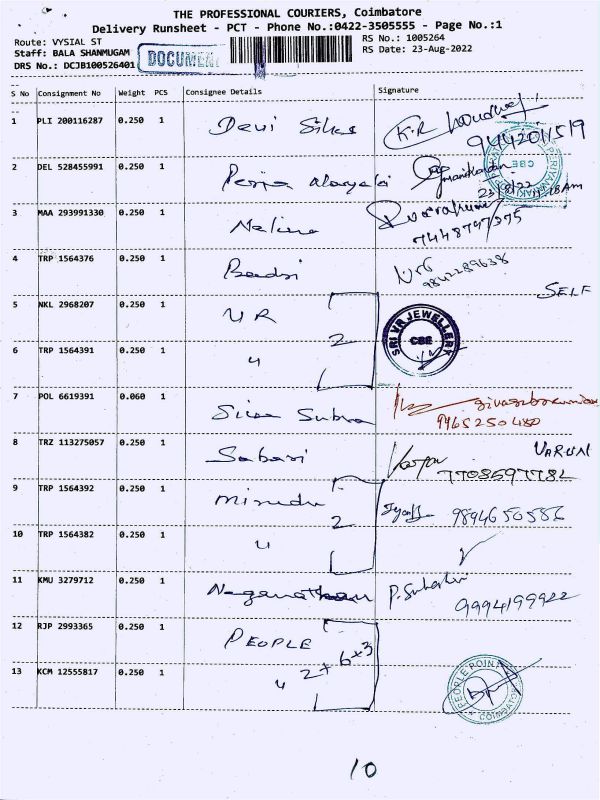 THE PROFESSIONAL COURIERS, Coimbatore
Delivery Runsheet - PCT - Phone No.:0422-3505555 - Page No.:1
Route: VYSIAL ST
RS No.: 1005264
Staff: BALA SHANMUGAM
RS Date: 23-Aug-2022
DRS No.: DCJB100526401
DOCUMEN
S No Consignment No Weight PCS Consignee Details Signature
1 PLI 200116287 0.250 1 Devi Silks K.R
9442011519
CBE
2 DEL 528455991 0.250 1 23/8/22 11.18Am
3 MAA 293991330 0.250 1 Nalina
7448797375
4 TRP 1564376 0.250 1 Badri
9842289638
SELF
5 NKL 2968207 0.250 1 UR 2
SRI VR JEWELLERY
CBE
6 TRP 1564391 0.250 1 "
7 POL 6619391 0.060 1 Siva Subra
9965250480
8 TRZ 113275057 0.250 1 Sabari VARUN
7708597782
9 TRP 1564392 0.250 1 2
9894650586
10 TRP 1564382 0.250 1 "
11 KMU 3279712 0.250 1 Naganathan
9994199922
12 RJP 2993365 0.250 1 PEOPLE
2 + 6x3
13 KCM 12555817 0.250 1 "
PEOPLE POIN
COIMBATOR
10